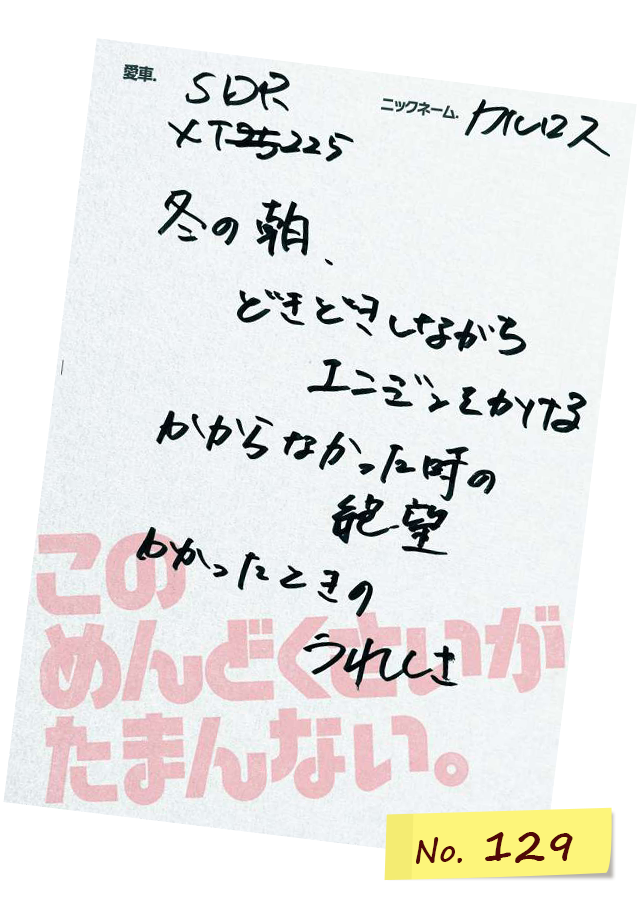 愛車.
SDR
XT225
ニックネーム. カルロス
冬の朝、
どきどきしながら
エンジンをかける
かからなかった時の
絶望
かかったときの
うれしさ
この
めんどくさいが
たまんない。
No. 129